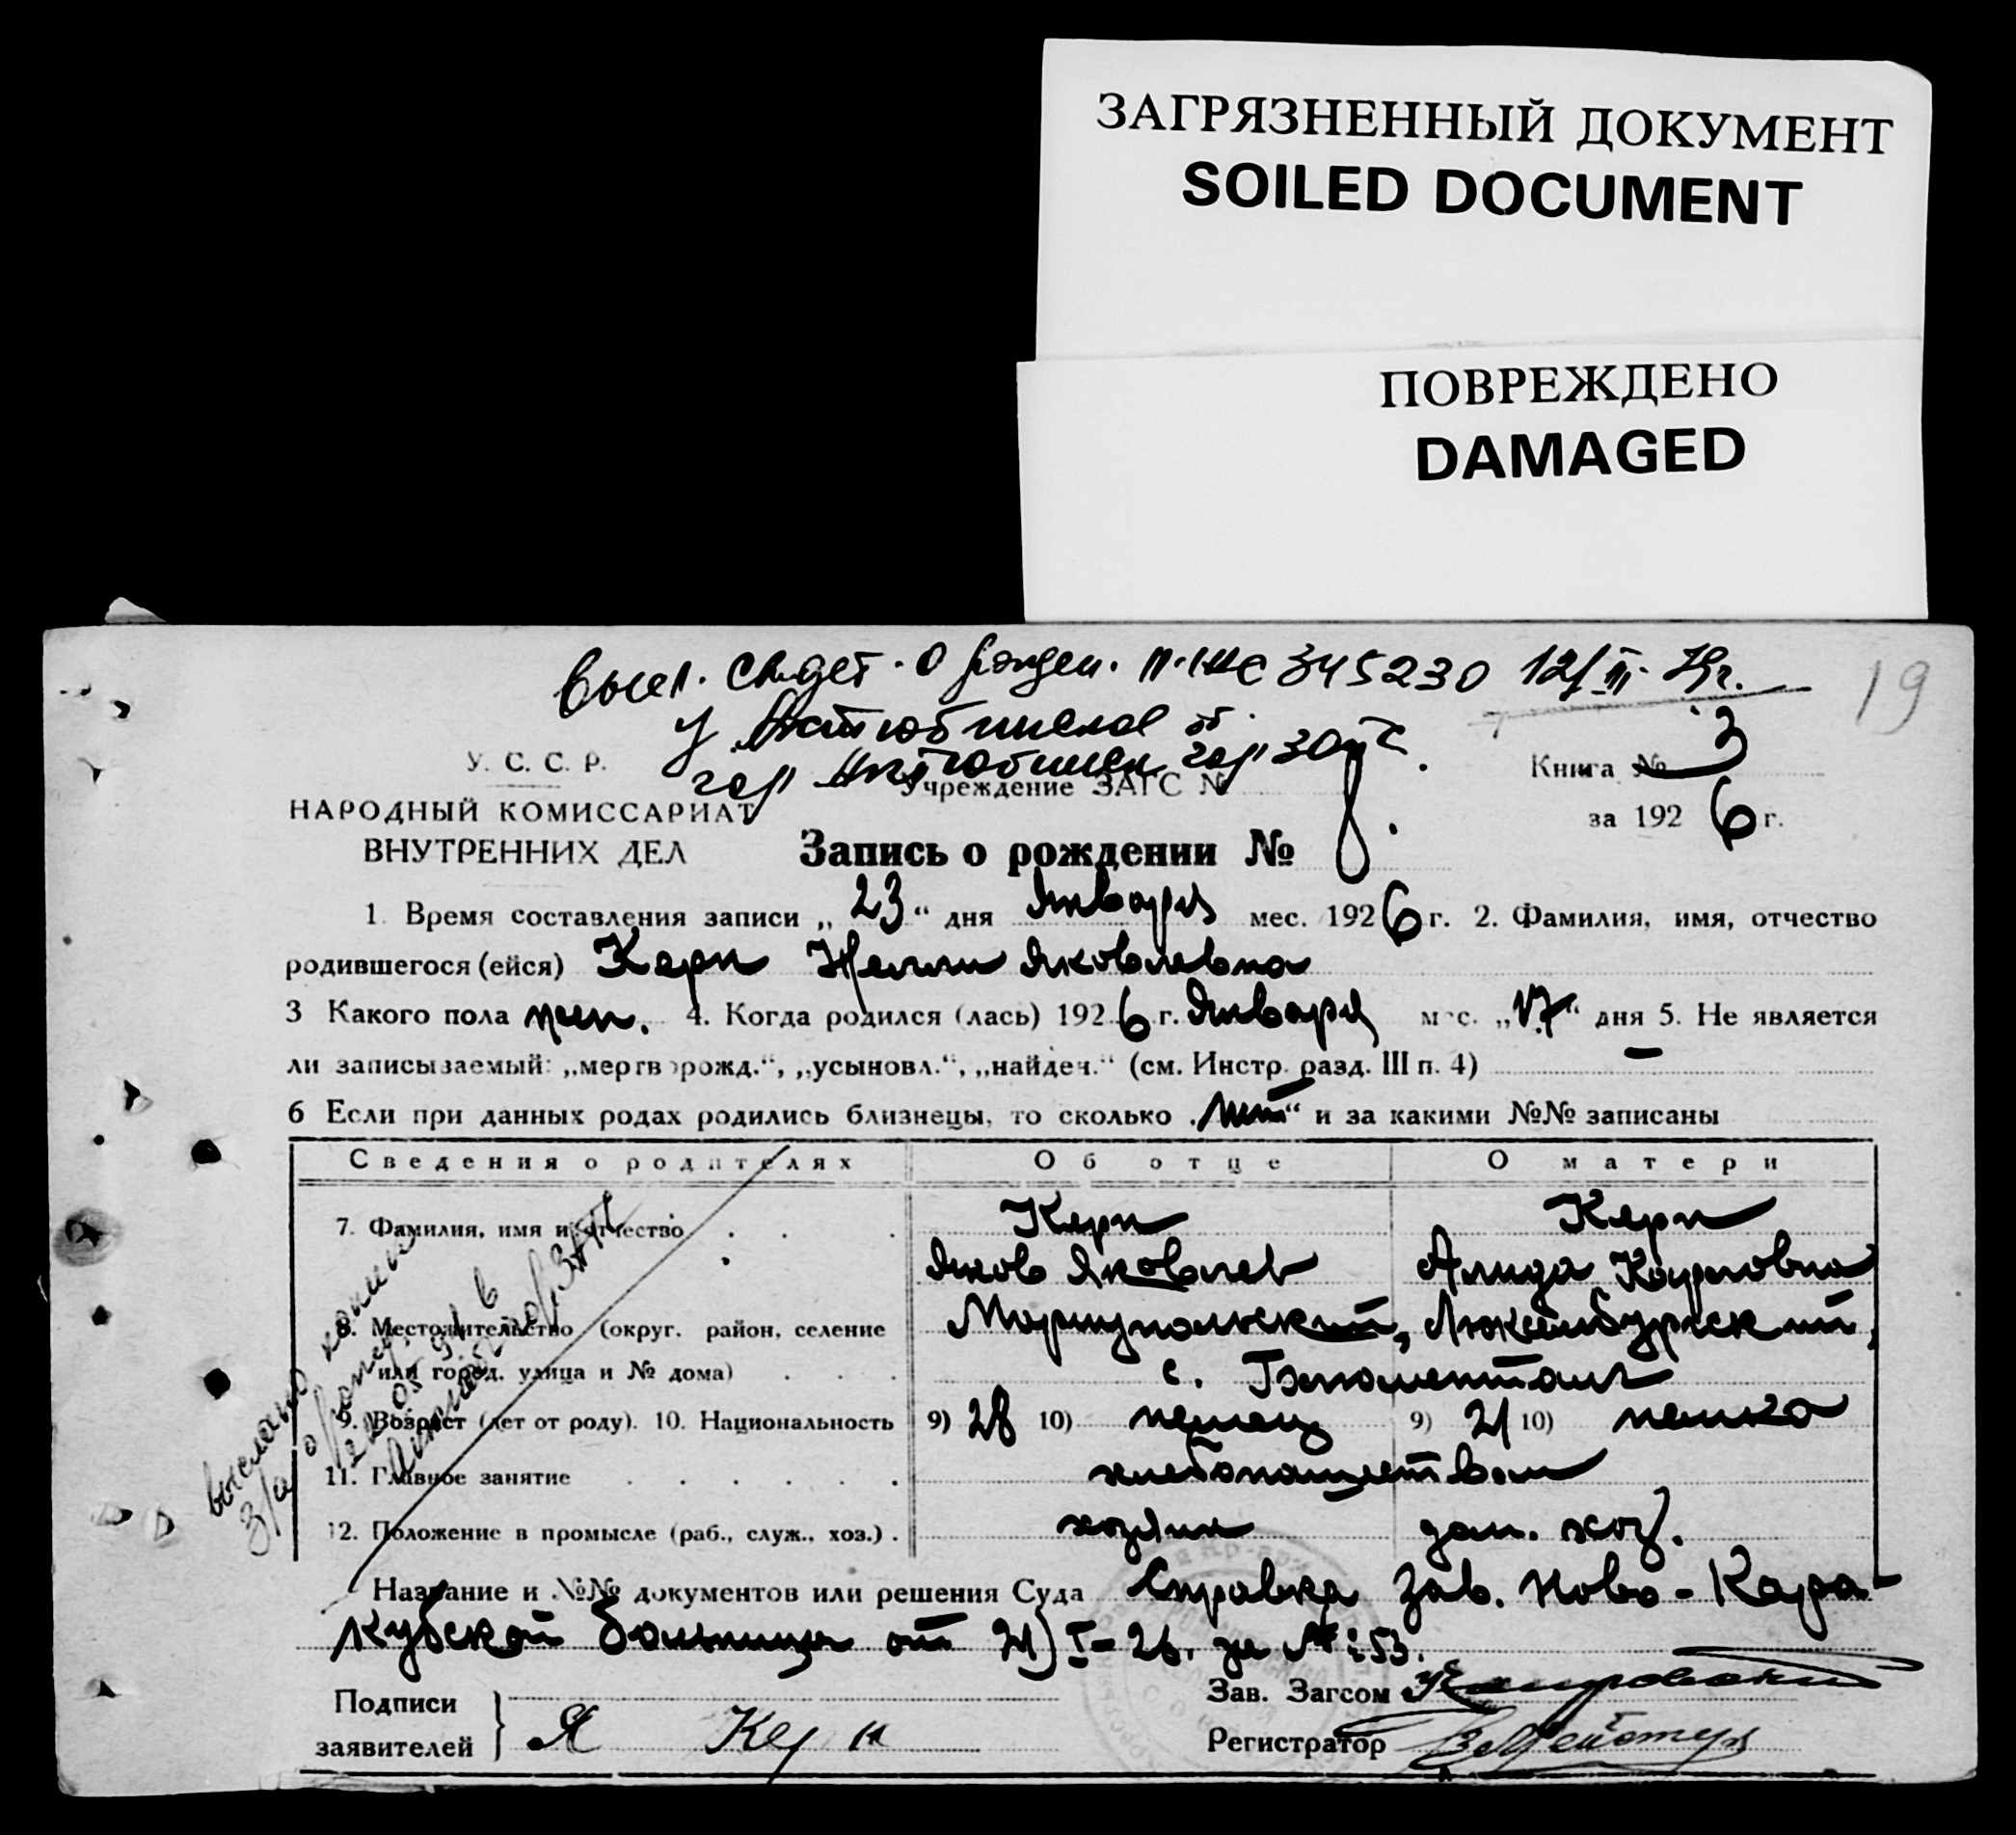 ЗАГРЯЗНЕННЫЙ ДОКУМЕНТ
SOILED DOCUMENT
ПОВРЕЖДЕНО
DAMAGED
19
Высл. свидет. о рожден. 345230 12/III-79г.
У. С. С. Р.
НАРОДНЫЙ КОМИССАРИАТ
ВНУТРЕННИХ ДЕЛ
Учреждение ЗАГС №
Книга № 3
за 1926 г.
Запись о рождении № 8.
1. Время составления записи „23“ дня Января мес. 1926 г. 2. Фамилия, имя, отчество
родившегося (ейся) Керн Нелли Яковлевна
3 Какого пола жен. 4. Когда родился (лась) 1926 г. Января мес. „17“ дня 5. Не является
ли записываемый: „мертворожд.“, „усыновл.“, „найден.“ (см. Инстр. разд. III п. 4) —
6 Если при данных родах родились близнецы, то сколько „нет“ и за какими №№ записаны
Сведения о родителях Об отце О матери
7. Фамилия, имя и отчество Керн Керн
Яков Яковлев Алида
8. Местожительство (округ, район, селение Мариупольский, Люксембургский,
или город, улица и № дома) с.
9. Возраст (лет от роду). 10. Национальность 9) 28 10) немец 9) 21 10) немка
11. Главное занятие хлебопашеством
12. Положение в промысле (раб., служ., хоз.) хозяин дом. хоз.
Название и №№ документов или решения Суда Справка Зав. Ново-Кара-
кубской больницы от 21/I-26. за № 53.
Подписи
заявителей
Я Керн
Зав. Загсом
Регистратор